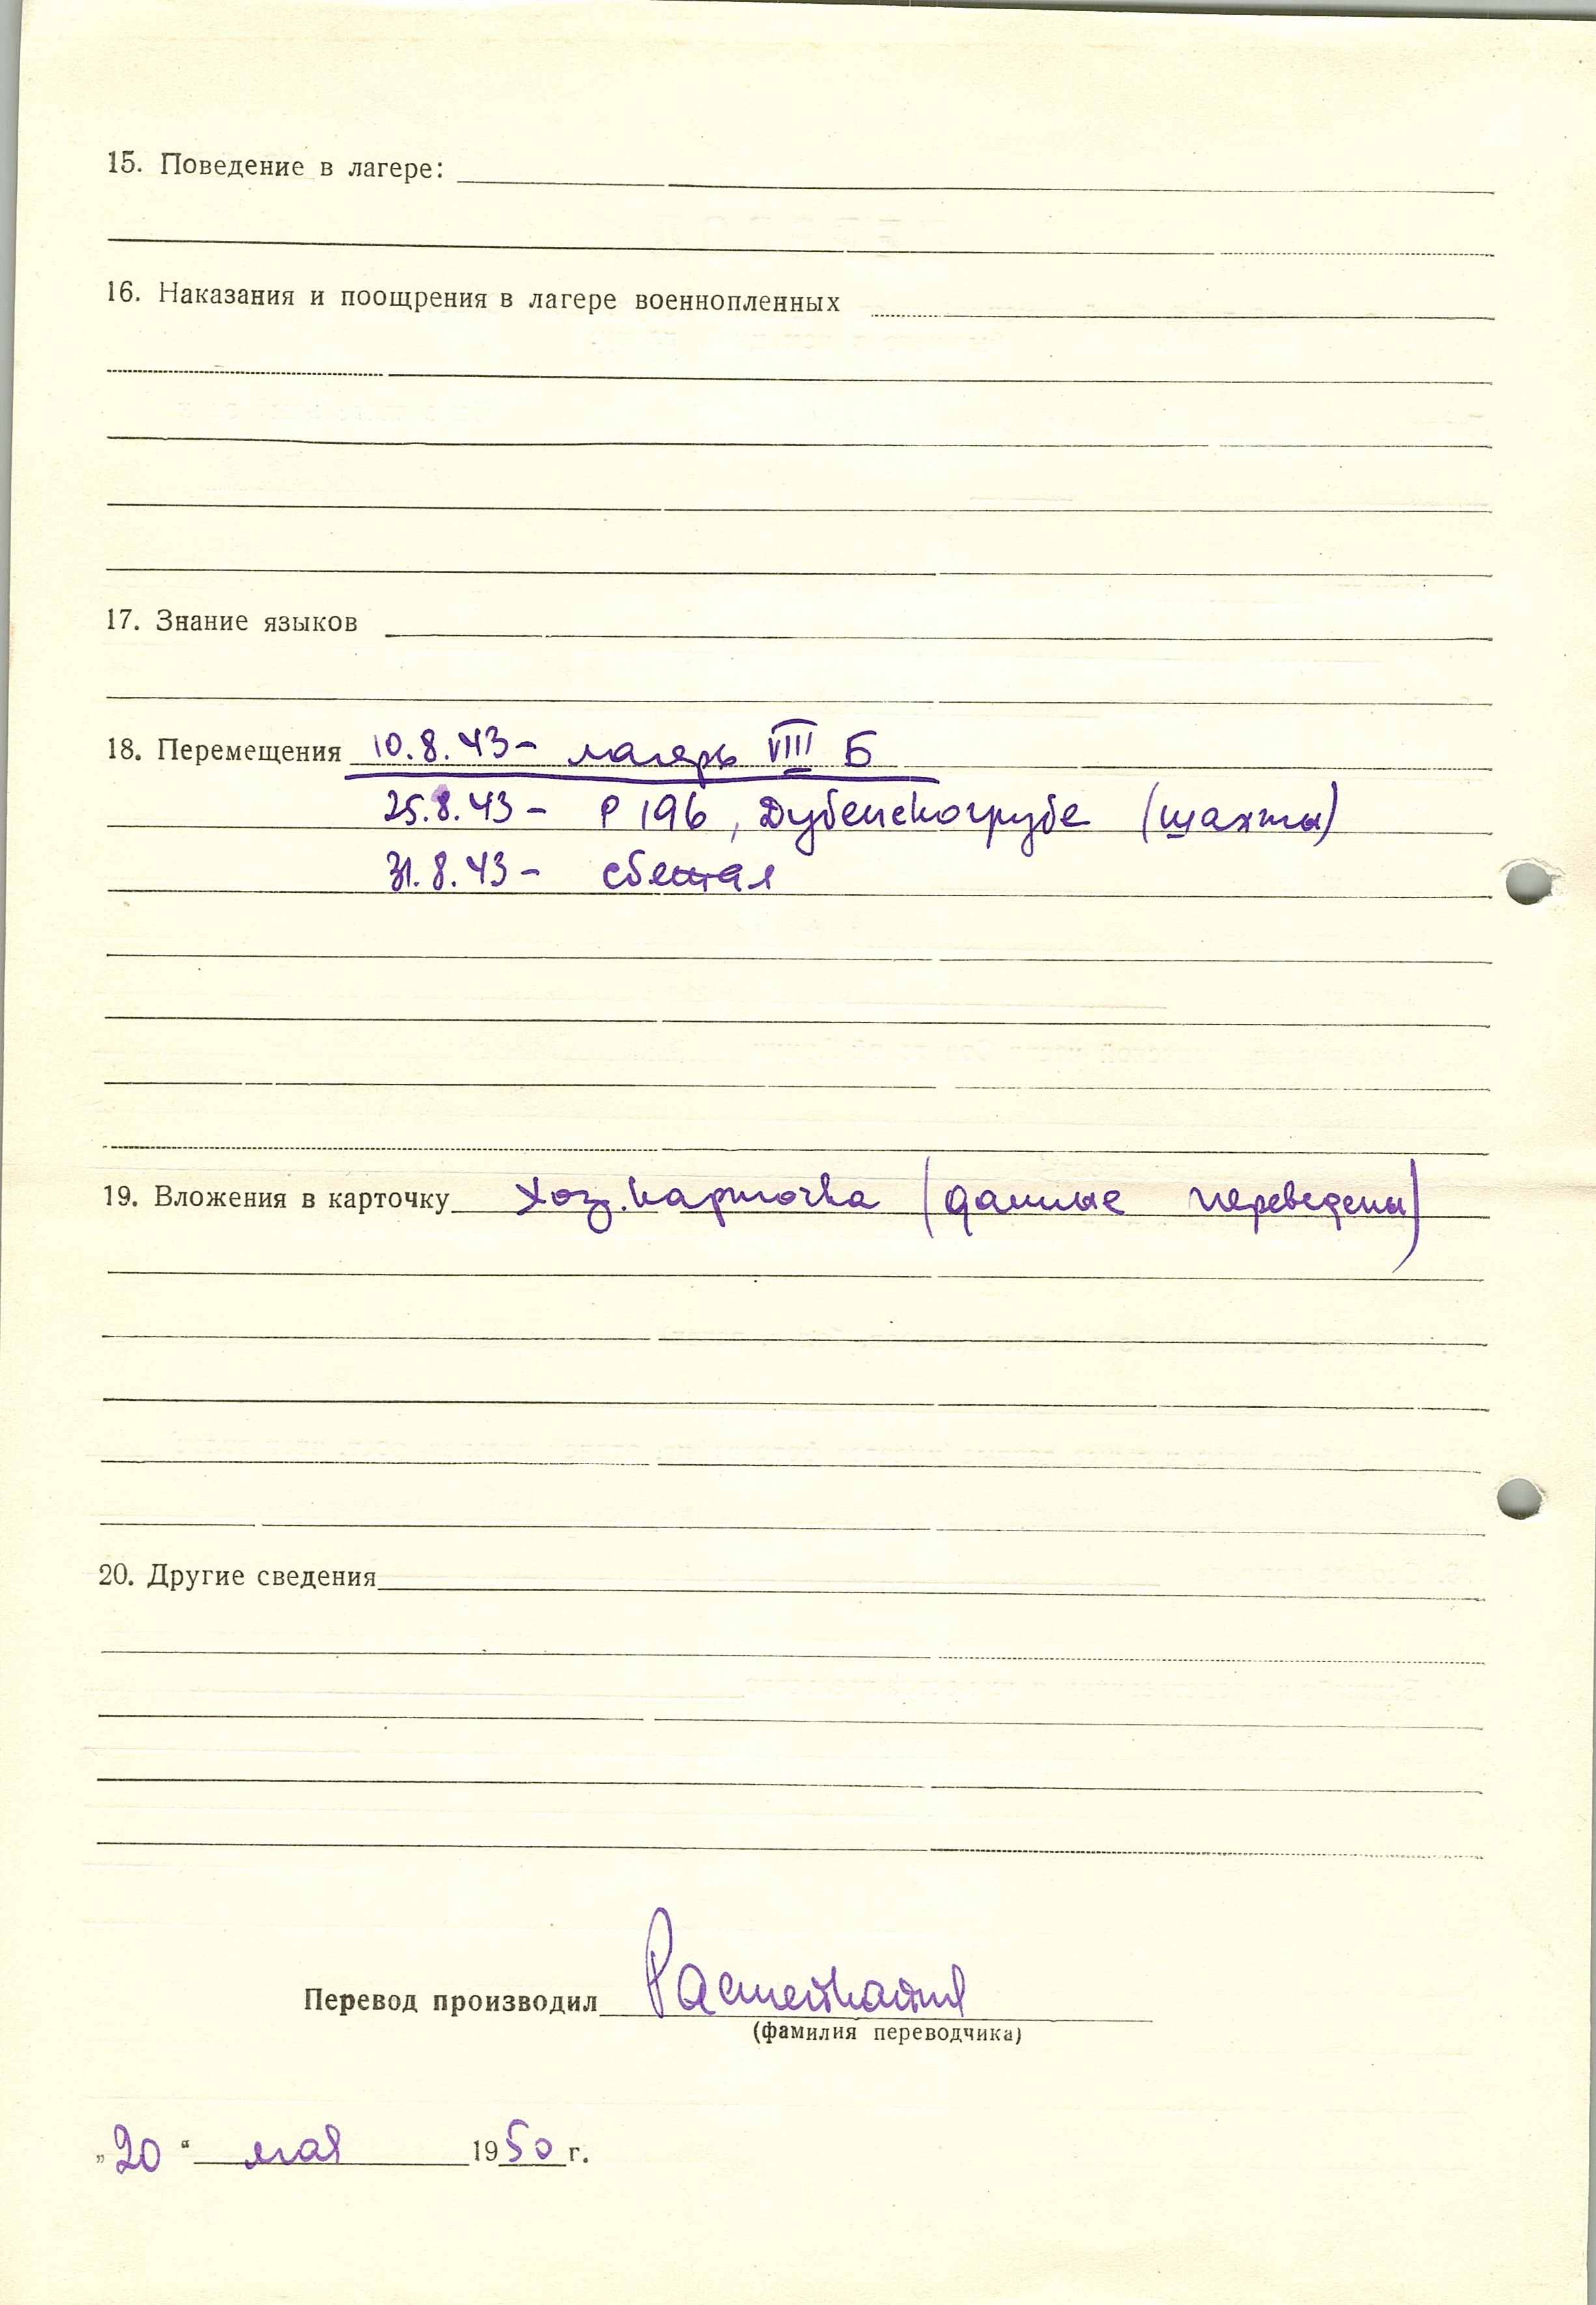 15. Поведение в лагере:
16. Наказания и поощрения в лагере военнопленных
17. Знание языков
18. Перемещения 10.8.43 – лагерь VIII Б
25.8.43 – Р 196, Дубенскогрубе (шахты)
31.8.43 – сбежал
19. Вложения в карточку хоз. карточка (данные переведены)
20. Другие сведения
Перевод производил
(фамилия переводчика)
„20“ мая 1950 г.